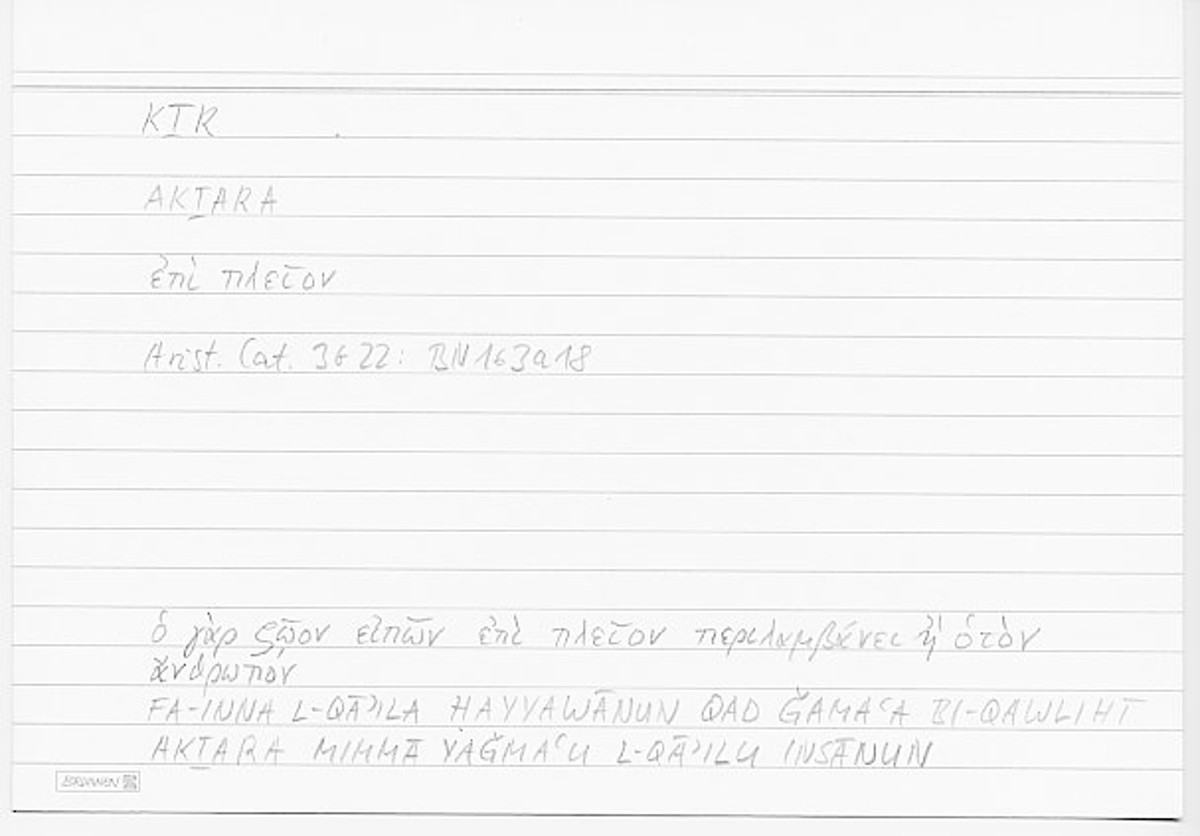 KṮR
AKṮARA
ἐπὶ πλεῖον
Arist. Cat. 3b22: BN163a18
ὁ γὰρ ζῷον εἰπὼν ἐπὶ πλεῖον περιλαμβάνει ἢ ὁ τὸν
ἄνθρωπον
FA-INNA L-QĀʾILA ḤAYYAWĀNUN QAD ǦAMAʿA BI-QAWLIHĪ
AKṮARA MIMMĀ YAǦMAʿU L-QĀʾILU INSĀNUN
BRUNNEN